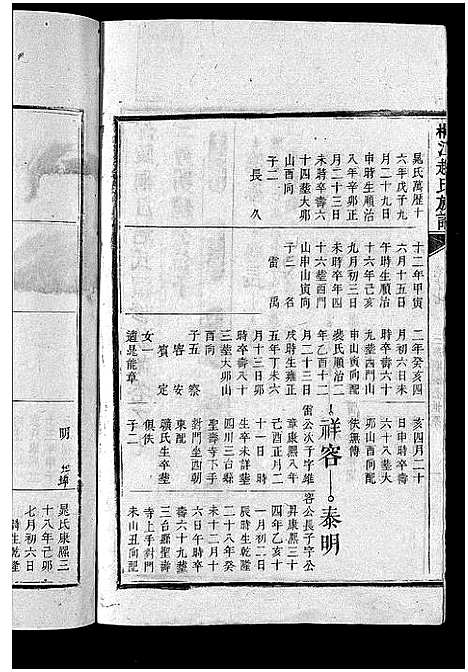 江趙氏族譜
晁氏萬歷十
六年戊子九
月二十九日
申時生順治
八年辛卯正
月二十三日
未時卒壽六
十四塟大卯
山酉向
子二
長久
十二年甲寅
六月十五日
午時生順治
十六年己亥
九月初三日
未時卒年四
十六塟百丈
山申山寅向
子二名
雷禹
二年癸亥四
月初六日未
時卒壽六十
九塟西門山
申山寅向配
裴氏順治二
年乙酉十二
月二十三日
戌時生雍正
五年丁未六
月十三日卯
時卒壽八十
三塟大卯山
酉向
子五 察
容安
賓定
女一
適是能章
亥四月二十
日申時卒壽
六十八塟大
卯山酉向配
佚無傳
祥容
雷公次子字維
章康熙八年
己酉正月二
十一日 時
生卒未詳塟
四川三台縣
聖壽寺下手
對門坐西朝
東配
嶺氏生卒塟
俱佚
子二
泰明
容公長子字公
昇康熙三十
四年乙亥十
一月初二日
辰時生乾隆
二十八年癸
未十二月十
六日時卒壽
六十九塟
三台縣聖壽
寺上手對門
未山丑向配
明
晁氏康熙三
十八年己卯
七月初六日
時生乾隆